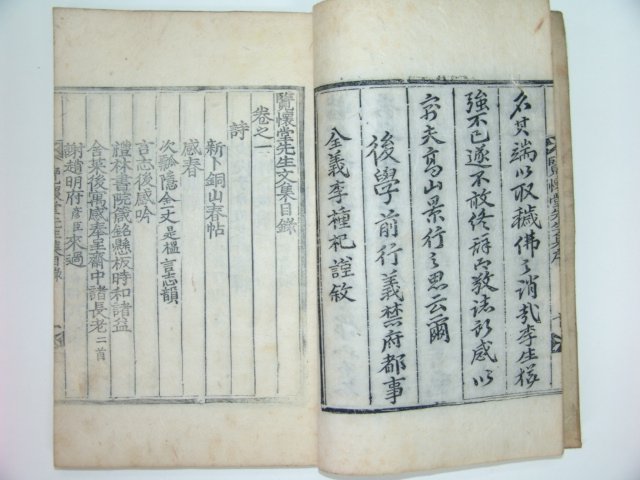 名其端以取穢佛之誚哉李生檥
強不已遂不敢終辞而敬誌所感以
寓夫高山景行之思云爾
後學前行義禁府都事
全義李種杞謹敘
覽懷堂先生文集目錄
卷之一
詩
新卜銅山春帖
感春
次瓢隱金丈是榲言志韻
言志後感吟
禮林書院箴銘懸板時和諸益
舍菜後寓感奉呈齋中諸長老二首
謝趙明府彦臣來過